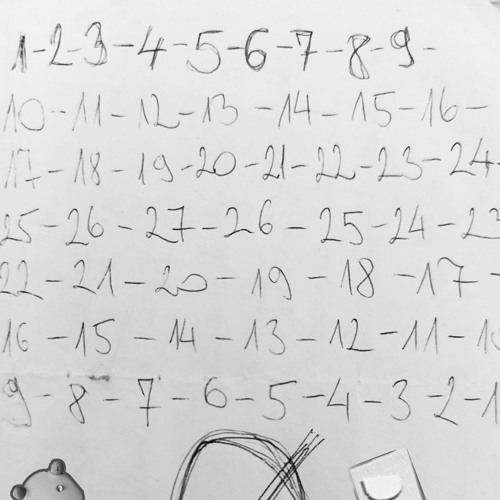 1-2-3-4-5-6-7-8-9-
10-11-12-13-14-15-16-
17-18-19-20-21-22-23-24-
25-26-27-26-25-24-23
22-21-20-19-18-17-
16-15-14-13-12-11-10
9-8-7-6-5-4-3-2-1